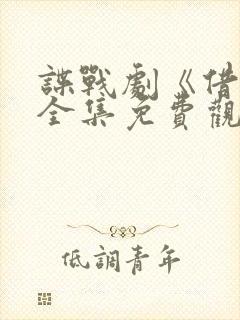 諜戰劇《借
全集免費觀
低調青年